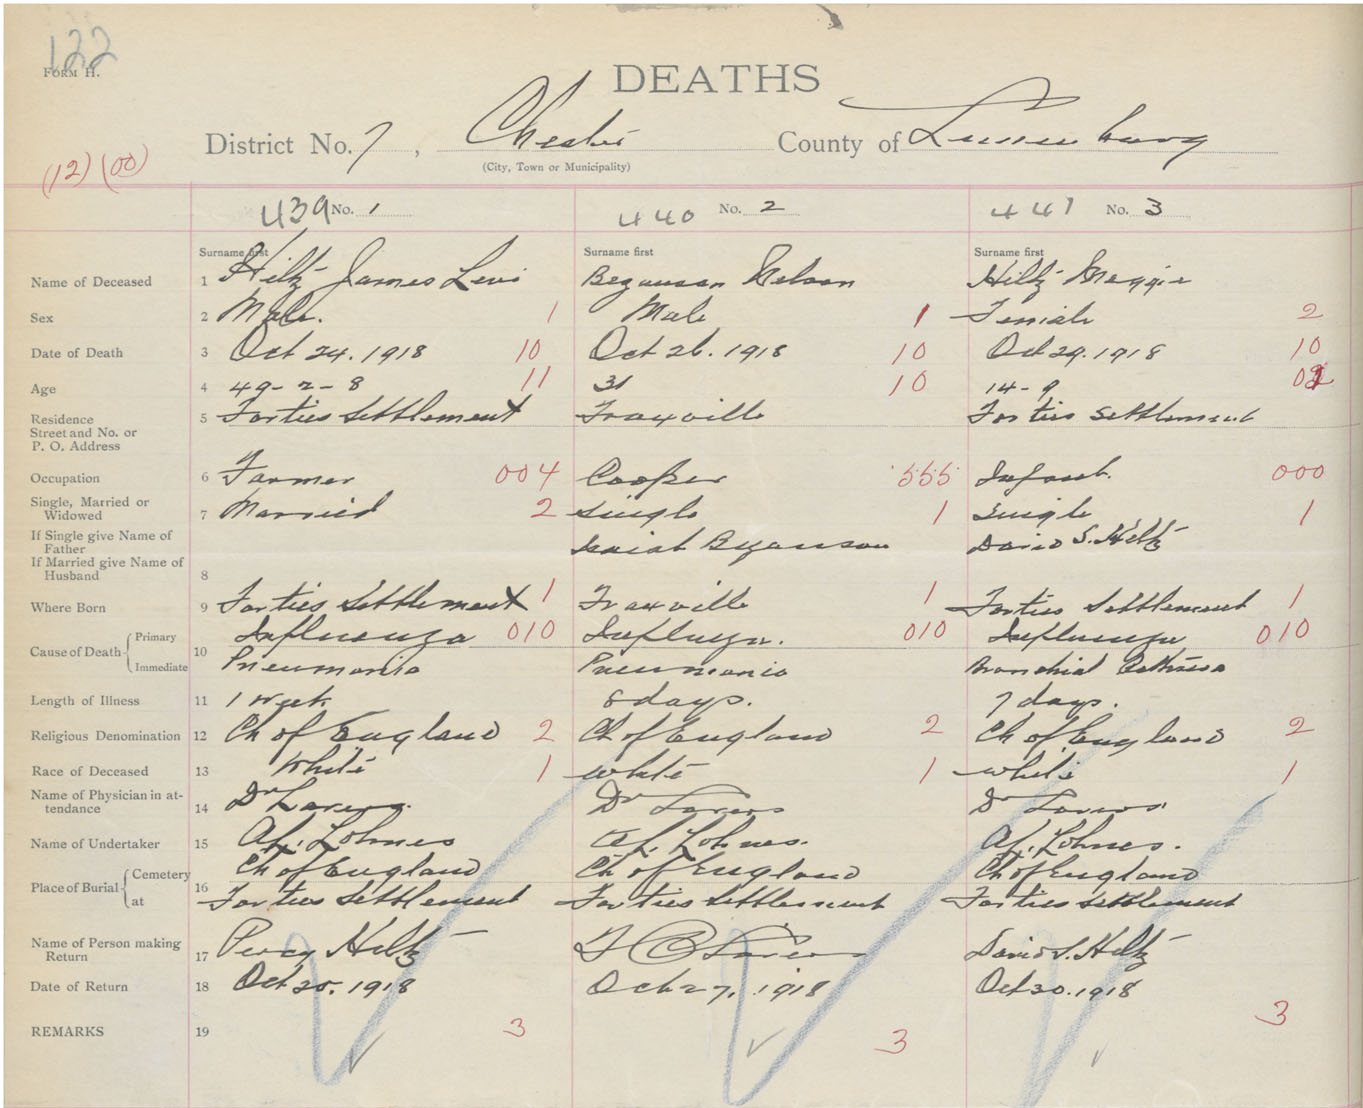 122
FORM H.
DEATHS
District No. 7, Chester County of Lunenburg
(City, Town or Municipality)
(12) (00)
439 No. 1 440 No. 2 441 No. 3
Surname first Surname first Surname first
Name of Deceased 1 Hiltz James Levi Bezanson Nelson Hiltz Maggie
Sex 2 Male. 1 Male 1 Female 2
Date of Death 3 Oct 24. 1918 10 Oct 26. 1918 10 Oct 29. 1918 10
Age 4 49-2-8 11 31 10 14-9
Residence 5 Forties Settlement Fraxville Forties Settlement
Street and No. or
P. O. Address
Occupation 6 Farmer 004 Cooper 555 Infant. 000
Single, Married or
Widowed 7 Married 2 Single 1 Single 1
If Single give Name of
Father Isaiah Bezanson David S. Hiltz
If Married give Name of
Husband 8
Where Born 9 Forties Settlement 1 Fraxville 1 Forties Settlement 1
Cause of Death Primary 10 Influenza 010 Influenza. 010 Influenza 010
Immediate Pneumonia Pneumonia Bronchial
Length of Illness 11 1 week 8 days. 7 days.
Religious Denomination 12 Ch of England 2 Ch of England 2 Ch of England 2
Race of Deceased 13 White 1 white 1 white 1
Name of Physician in at-
tendance 14 Dr Dr Dr
Name of Undertaker 15 Lohnes Lohnes. Lohnes.
Place of Burial Cemetery 16 Ch of England Ch of England Ch of England
at Forties Settlement Forties Settlement Forties Settlement
Name of Person making
Return 17 Percy Hiltz David S. Hiltz
Date of Return 18 Oct 1918 Oct 27, 1918 Oct 30. 1918
REMARKS 19 3 3 3